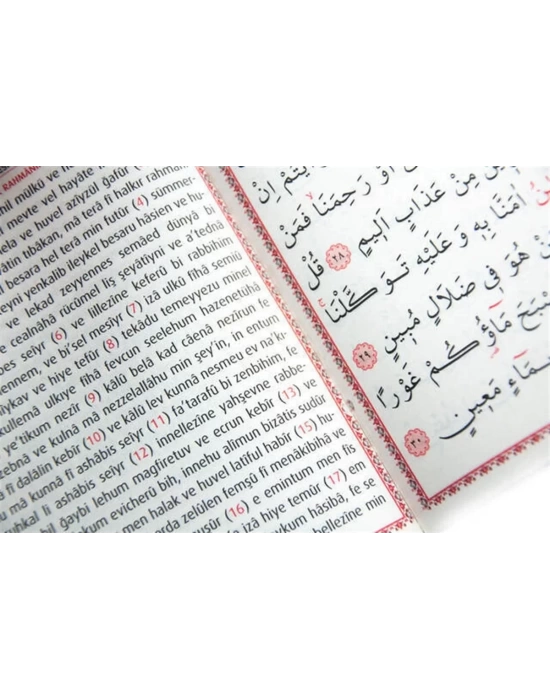 RAHMANI
hil mülkü ve
meyte vel hayâte
ela ve huvel azîyzül gafûr
vâtin tibâkan, mâ terâ fî halkır rahmâ
besara hel terâ min futûr (4) sümmer-
teyni yenkalib ileykel besaru hâsien ve hu-
ve lekad zeyyennes semâed dünyâ bi
e cealnâhâ rücûmel liş şeyâtiyni ve a'tednâ
bes seîyr (6) ve lillezîne keferû bi rabbihim
ennem, ve bi'sel mesîyr (7) izâ ulkû fîhâ semiû
iykav ve hiye tefûr (8) tekâdu temeyyezu minel
kullemâ ulkıye fîhâ fevcun seelehum hazenetühâ
e'tikum nezîr (9) kâlû belâ kad câenâ nezîrun fe
zebnâ ve kulnâ mâ nezzelallâhu min şey'in, in entum
â fî dalâlin kebîr (10) ve kâlû lev kunnâ nesmeu ev na'kı-
u mâ kunnâ fî ashâbis seîyr (11) fa'tarafû bi zenbihim, fe
uhkal li ashâbis seîyr (12) innellezîne yahşevne rabbe-
bil ğaybi lehum mağfiretuv ve ecrun kebîr (13) ve
kum evicherû bih, innehu alîmun bizâtis sudûr
men halak ve huvel latîful habîr (15) hu-
arda zelûlen femşû fî menâkibihâ ve
nuşûr (16) e emintum men fis
izâ hiye temûr (17) em
aykum hâsıbâ, fe se
bellezîne min
اِنْ
اَوْ رَحِمَنَا فَمَنْ
مِنْ عَذَابٍ اَلِيمٍ ﴿٢٨﴾ قُلْ
اٰمَنَّا بِهِ وَعَلَيْهِ تَوَكَّلْنَا
هُوَ فِي ضَلَالٍ مُبِينٍ ﴿٢٩﴾
مَاؤُكُمْ غَوْرًا
مَعِينٍ ﴿٣٠﴾